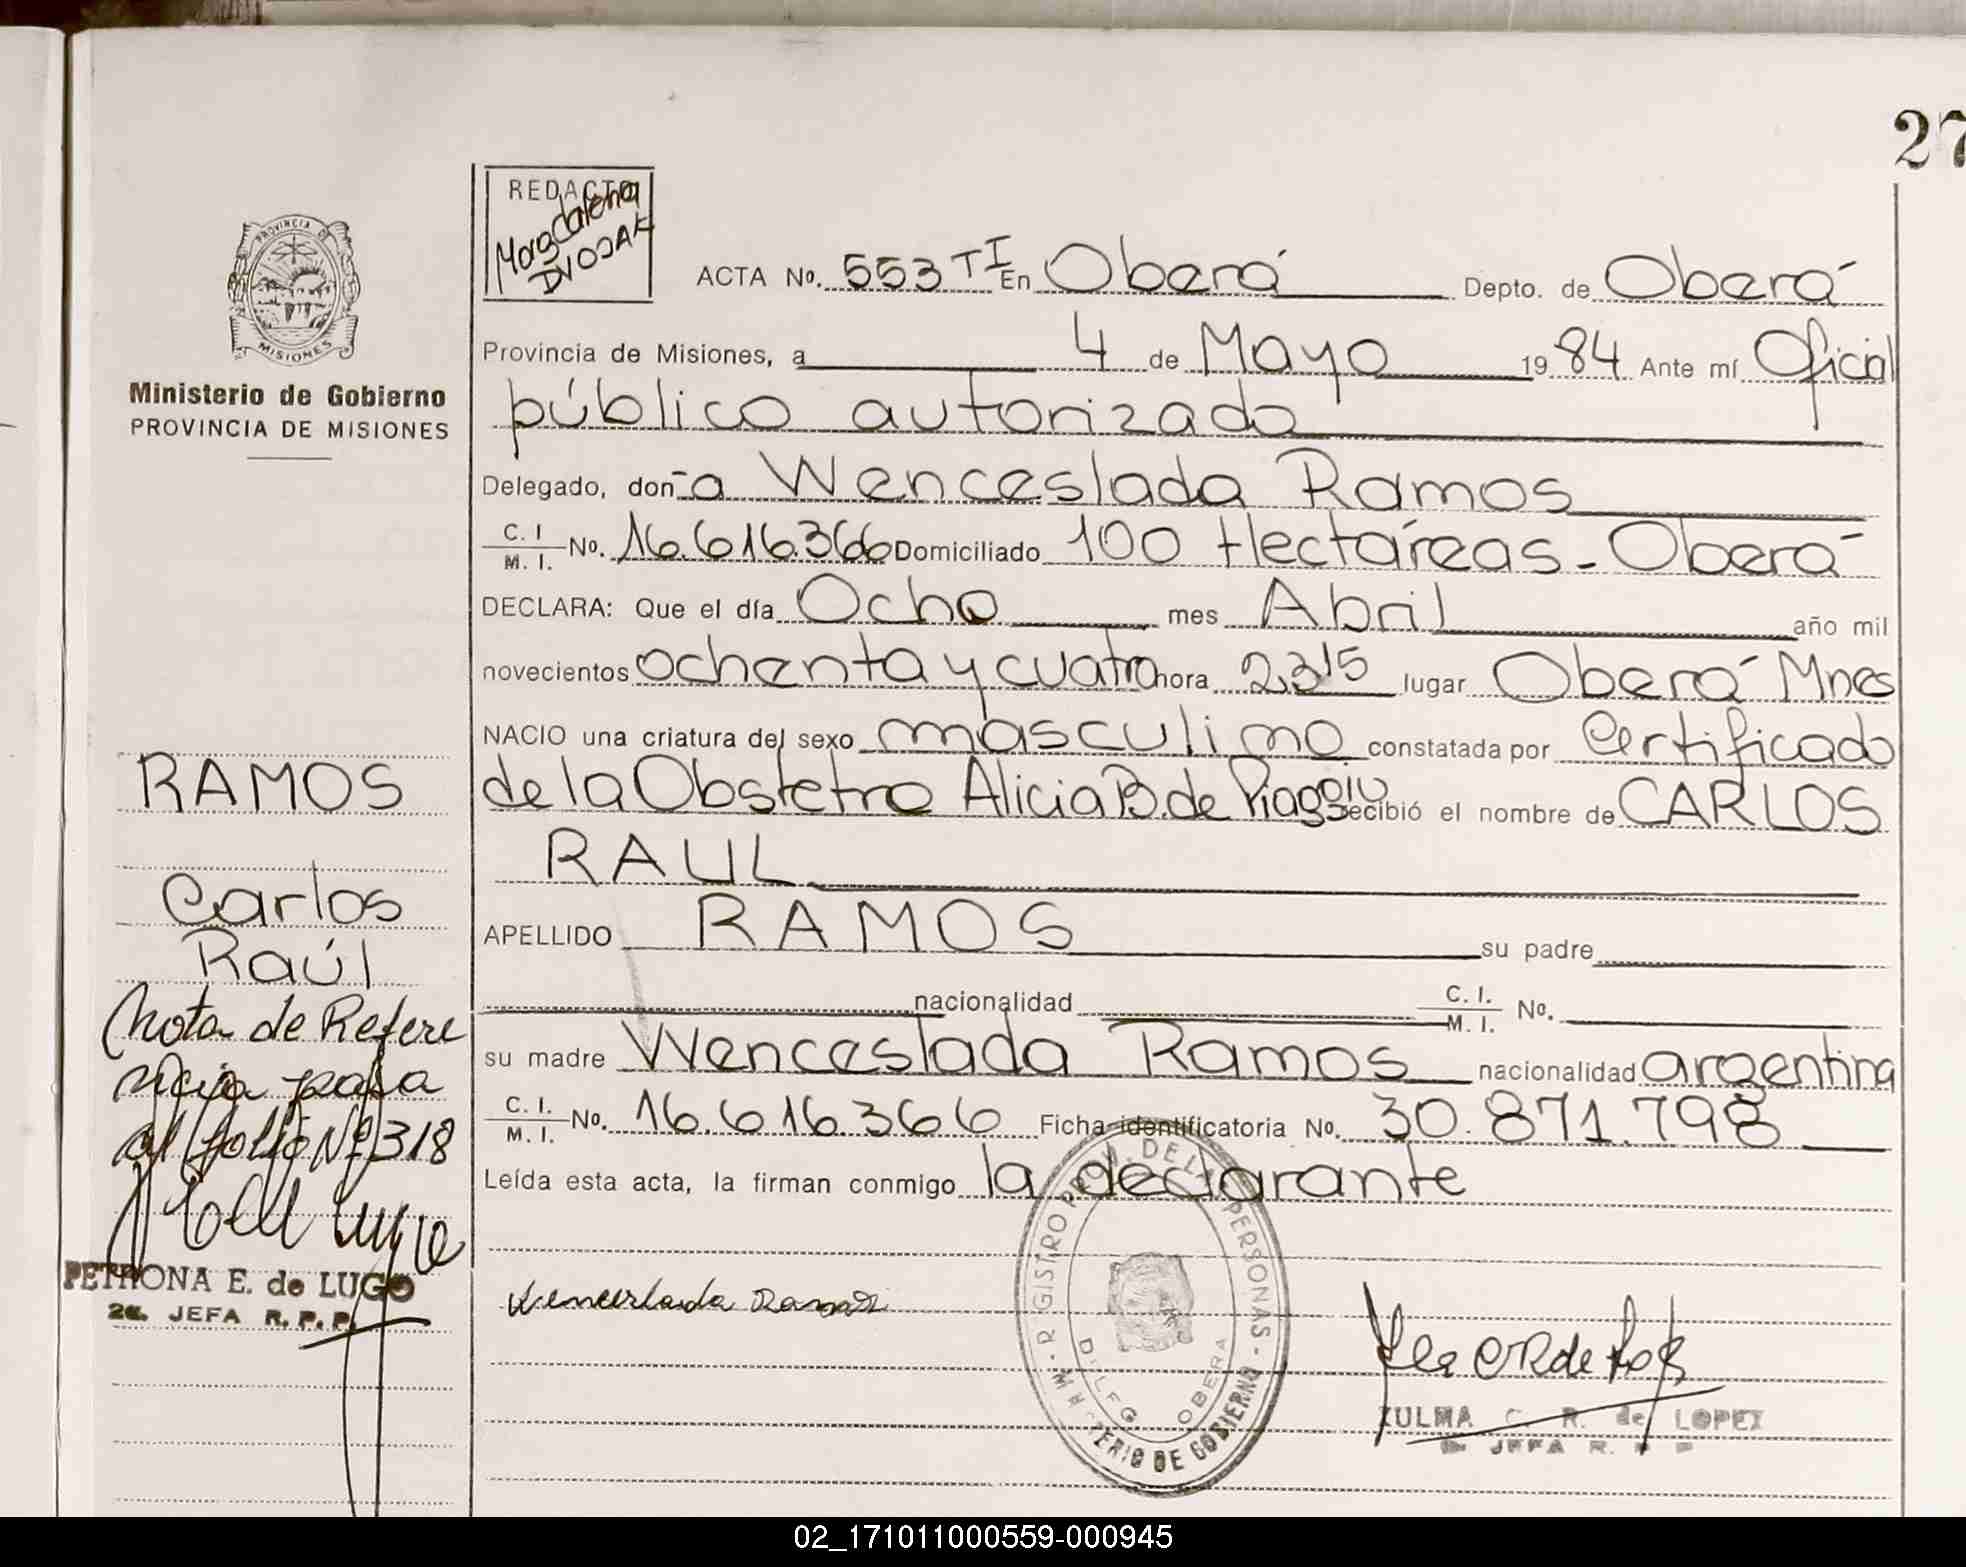 27
REDACTO
Magdalena
DVOJAK
PROVINCIA DE
MISIONES
Ministerio de Gobierno
PROVINCIA DE MISIONES
ACTA No. 553 TI En Oberá Depto. de Oberá
Provincia de Misiones, a 4 de Mayo 1984 Ante mí Oficial
público autorizado
Delegado, don-a Wenceslada Ramos
C. I. / M. I. No. 16.616.366 Domiciliado 100 Hectáreas - Oberá
DECLARA: Que el día Ocho mes Abril año mil
novecientos ochenta y cuatro hora 2315 lugar Oberá Mnes
NACIO una criatura del sexo masculino constatada por Certificado
de la Obstetra Alicia B. de Piaggio recibió el nombre de CARLOS
RAUL
APELLIDO RAMOS su padre
nacionalidad C. I. / M. I. No.
su madre Wenceslada Ramos nacionalidad argentina
C. I. / M. I. No. 16.616.366 Ficha identificatoria No. 30.871.798
Leída esta acta, la firman conmigo la declarante
RAMOS
Carlos
Raúl
Nota de Refere
ncia para
al folio Nº 318
PETRONA E. de LUGO
2a. JEFA R. P. P.
Wenceslada Ramos
REGISTRO PROV. DE LAS PERSONAS - MINISTERIO DE GOBIERNO
DELEG. OBERA
ZULMA C. R. de LOPEZ
JEFA R. P. P.
02_171011000559-000945